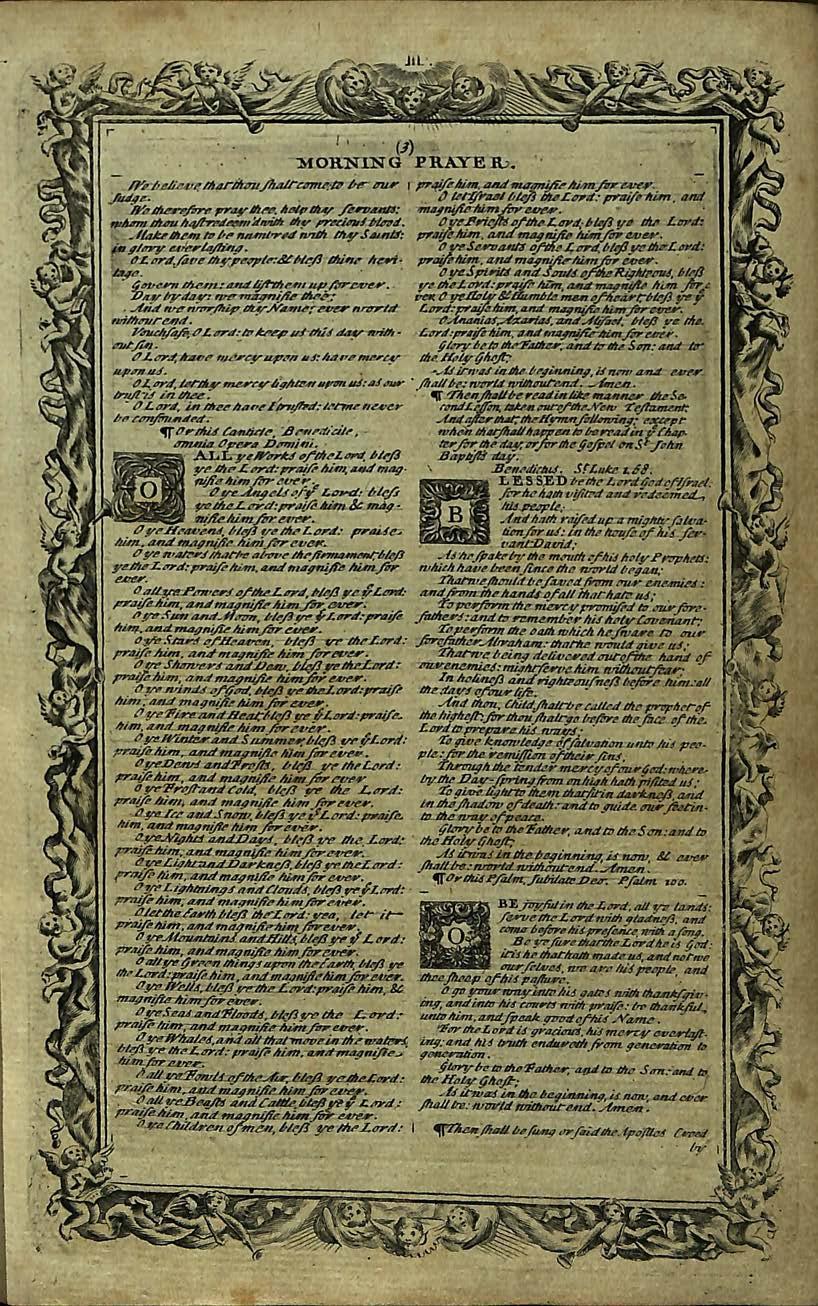 III.
(3)
MORNING PRAYER.
We believe that thou ſhalt come to be our
Judge.
We therefore pray thee, help thy ſervants:
whom thou haſt redeem'd with thy precious blood.
Make them to be numbred with thy Saints:
in glory everlaſting.
O Lord, ſave thy people: & bleſs thine heri-
tage.
Govern them: and lift them up for ever.
Day by day: we magnifie thee;
And we worſhip thy Name; ever world
without end.
Vouchſafe, O Lord: to keep us this day with-
out ſin.
O Lord, have mercy upon us: have mercy
upon us.
O Lord, let thy mercy lighten upon us: as our
truſt is in thee.
O Lord, in thee have I truſted: let me never
be confounded.
¶ Or this Canticle, Benedicite,
omnia Opera Domini.
O ALL ye Works of the Lord, bleſs
ye the Lord: praiſe him, and mag-
nifie him for ever.
O ye Angels of yͤ Lord: bleſs
ye the Lord: praiſe him & mag-
nifie him for ever.
O ye Heavens, bleſs ye the Lord: praiſe
him, and magnifie him for ever.
O ye waters that be above the firmament bleſs
ye the Lord: praiſe him, and magnifie him for
ever.
O all ye Powers of the Lord, bleſs ye yͤ Lord:
praiſe him, and magnifie him for ever.
O ye Sun and Moon, bleſs ye yͤ Lord: praiſe
him, and magnifie him for ever.
O ye Stars of Heaven, bleſs ye the Lord:
praiſe him, and magnifie him for ever.
O ye Showers and Dew, bleſs ye the Lord:
praiſe him, and magnifie him for ever.
O ye winds of God, bleſs ye the Lord: praiſe
him, and magnifie him for ever.
O ye Fire and Heat, bleſs ye yͤ Lord: praiſe
him, and magnifie him for ever.
O ye Winter and Summer, bleſs ye yͤ Lord:
praiſe him, and magnifie him for ever.
O ye Dews and Froſts, bleſs ye the Lord:
praiſe him, and magnifie him for ever
O ye Froſt and Cold, bleſs ye the Lord:
praiſe him, and magnifie him for ever.
O ye Ice and Snow, bleſs ye yͤ Lord: praiſe
him, and magnifie him for ever.
O ye Nights and Days, bleſs ye the Lord:
praiſe him, and magnifie him for ever.
O ye Light and Darkneſs, bleſs ye the Lord:
praiſe him, and magnifie him for ever.
O ye Lightnings and Clouds, bleſs ye yͤ Lord:
praiſe him, and magnifie him for ever.
O let the Earth bleſs the Lord: yea, let it
praiſe him, and magnifie him for ever.
O ye Mountains and Hills, bleſs ye yͤ Lord:
praiſe him, and magnifie him for ever.
O all ye Green things upon the Earth, bleſs ye
the Lord: praiſe him, and magnifie him for ever.
O ye Wells, bleſs ye the Lord: praiſe him, &
magnifie him for ever.
O ye Seas and Floods, bleſs ye the Lord:
praiſe him, and magnifie him for ever.
O ye Whales, and all that move in the waters,
bleſs ye the Lord: praiſe him, and magnifie
him for ever.
O all ye Fowls of the Air, bleſs ye the Lord:
praiſe him, and magnifie him for ever.
O all ye Beaſts and Cattle, bleſs ye yͤ Lord:
praiſe him, and magnifie him for ever.
O ye Children of men, bleſs ye the Lord:
praiſe him, and magnifie him for ever.
O let Iſrael bleſs the Lord: praiſe him, and
magnifie him for ever.
O ye Prieſts of the Lord, bleſs ye the Lord:
praiſe him, and magnifie him for ever.
O ye Servants of the Lord, bleſs ye the Lord:
praiſe him, and magnifie him for ever.
O ye Spirits and Souls of the Righteous, bleſs
ye the Lord: praiſe him, and magnifie him for e
ver. O ye Holy & Humble men of heart, bleſs ye yͤ
Lord: praiſe him, and magnifie him for ever.
O Ananias, Azarias, and Miſael, bleſs ye the
Lord: praiſe him, and magnifie him for ever.
Glory be to the Father, and to the Son: and to
the Holy Ghoſt;
As it was in the beginning, is now and ever
ſhall be: world without end. Amen.
¶ Then ſhall be read in like manner the Se-
cond Leſſon, taken out of the New Teſtament:
And after that, the Hymn following; except
when that ſhall happen to be read in yͤ Chap-
ter for the day, or for the Goſpel on Sᵗ John
Baptiſts day.
Benedictus. Sᵗ Luke 1.68.
BLESSED be the Lord God of Iſrael:
for he hath viſited and redeemed
his people;
And hath raiſed up a mighty ſalva-
tion for us: in the houſe of his ſer-
vant David;
As he ſpake by the mouth of his holy Prophets:
which have been ſince the world began;
That we ſhould be ſaved from our enemies:
and from the hands of all that hate us;
To perform the mercy promiſed to our fore-
fathers: and to remember his holy Covenant;
To perform the oath which he ſware to our
forefather Abraham: that he would give us;
That we being delivered out of the hand of
our enemies: might ſerve him without fear;
In holineſs and righteouſneſs before him: all
the days of our life.
And thou, Child, ſhalt be called the prophet of
the higheſt: for thou ſhalt go before the face of the
Lord to prepare his ways;
To give knowledge of ſalvation unto his peo-
ple: for the remiſſion of their ſins,
Through the tender mercy of our God: where-
by the Day-ſpring from on high hath viſited us;
To give light to them that ſit in darkneſs, and
in the ſhadow of death: and to guide our feet in-
to the way of peace.
Glory be to the Father, and to the Son: and to
the Holy Ghoſt;
As it was in the beginning, is now, & ever
ſhall be: world without end. Amen.
¶ Or this Pſalm, Jubilate Deo. Pſalm 100.
O BE joyful in the Lord, all ye lands:
ſerve the Lord with gladneſs, and
come before his preſence, with a ſong.
Be ye ſure that the Lord he is God:
it is he that hath made us, and not we
our ſelves, we are his people, and
the ſheep of his paſture.
O go your way into his gates with thankſgiv-
ing, and into his courts with praiſe: be thankful
unto him, and ſpeak good of his Name.
For the Lord is gracious, his mercy everlaſt-
ing: and his truth endureth from generation to
generation.
Glory be to the Father, and to the Son: and to
the Holy Ghoſt;
As it was in the beginning, is now, and ever
ſhall be: world without end. Amen.
¶ Then ſhall be ſung or ſaid the Apoſtles Creed
by